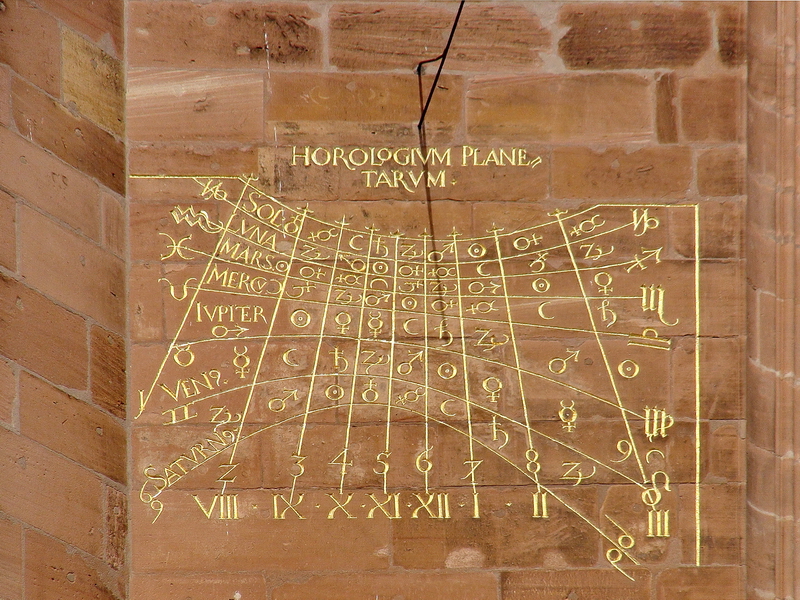 HOROLOGIVM PLANE⸗
TARVM ·
SOL
LVNA
MARS
MERCV
IVPITER
VEN9.
SATVRN9
2 3 4 5 6 7 8 9
VIII · IX · X · XI · XII · I · II III